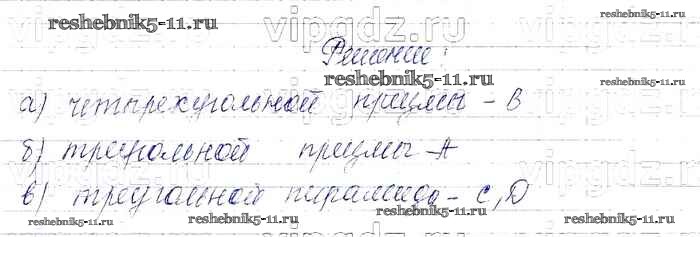 reshebnik5-11.ru
vipgdz.ru
reshebnik5-11.ru
Решение:
reshebnik5-11.ru
а) четырехугольной призмы - В
vipgdz.ru
б) треугольной призмы - А
vipgdz.ru
в) треугольной пирамида - С, D
reshebnik5-11.ru reshebnik5-11.ru reshebnik5-11.ru
vipgdz.ru